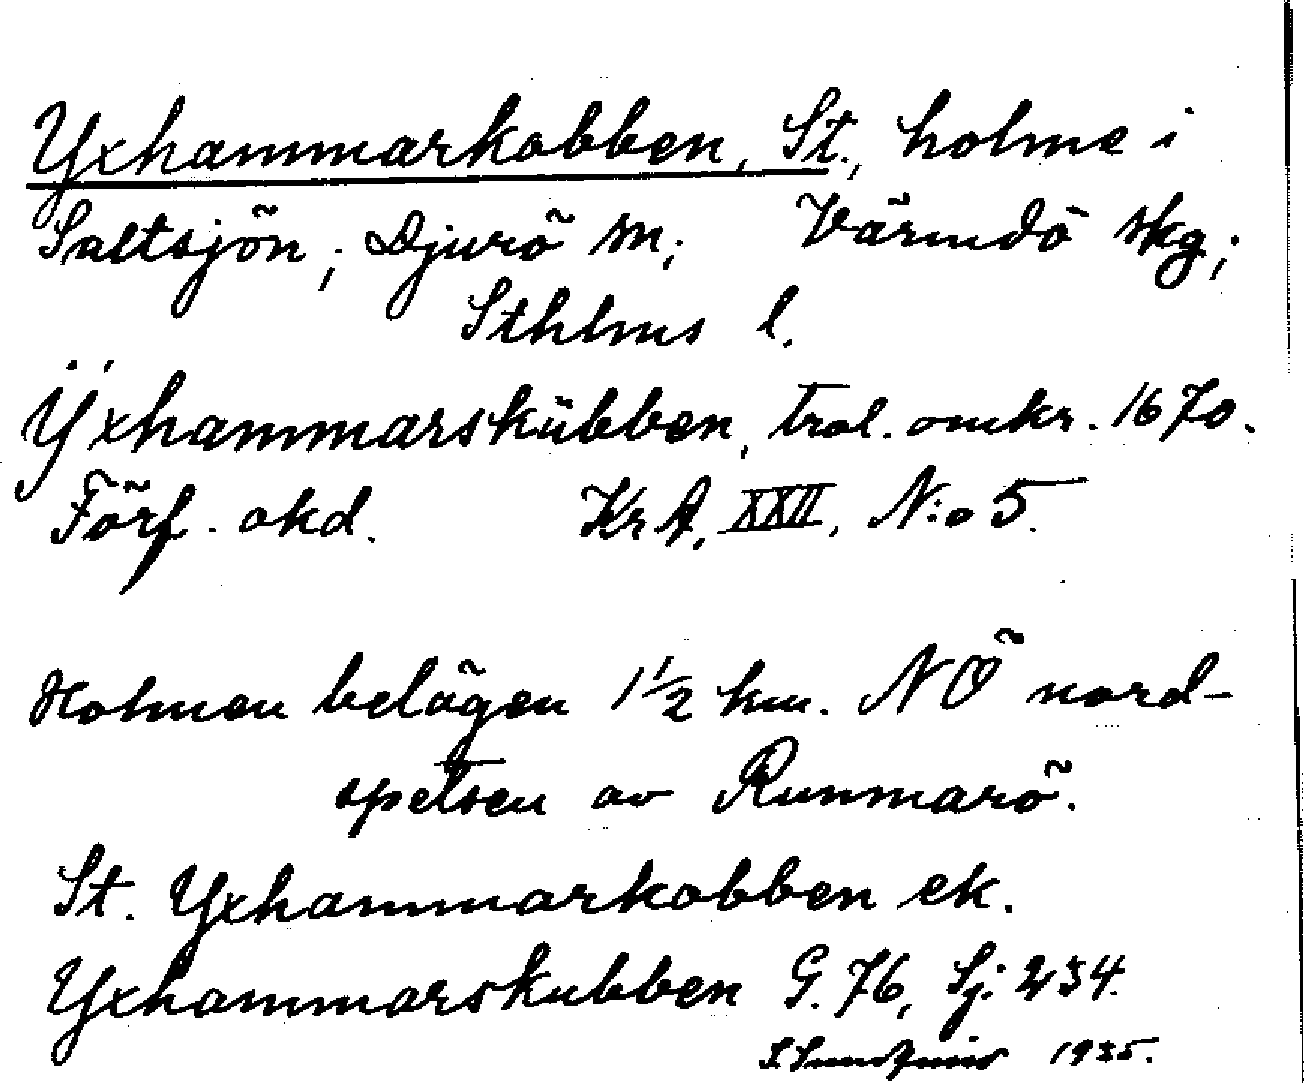 Yxhammarkobben, St., holme i
Saltsjön; Djurö sn; Värmdö skg;
Sthlms l.
Ÿxhammarskübben, trol. omkr. 1670.
Förf. okd. KrA, XXII, N:o 5.
Holmen belägen 1 1/2 km. NÖ nord-
spetsen av Runmarö.
St. Yxhammarkobben ek.
Yxhammarskubben G. 76, Sj: 234.
1935.